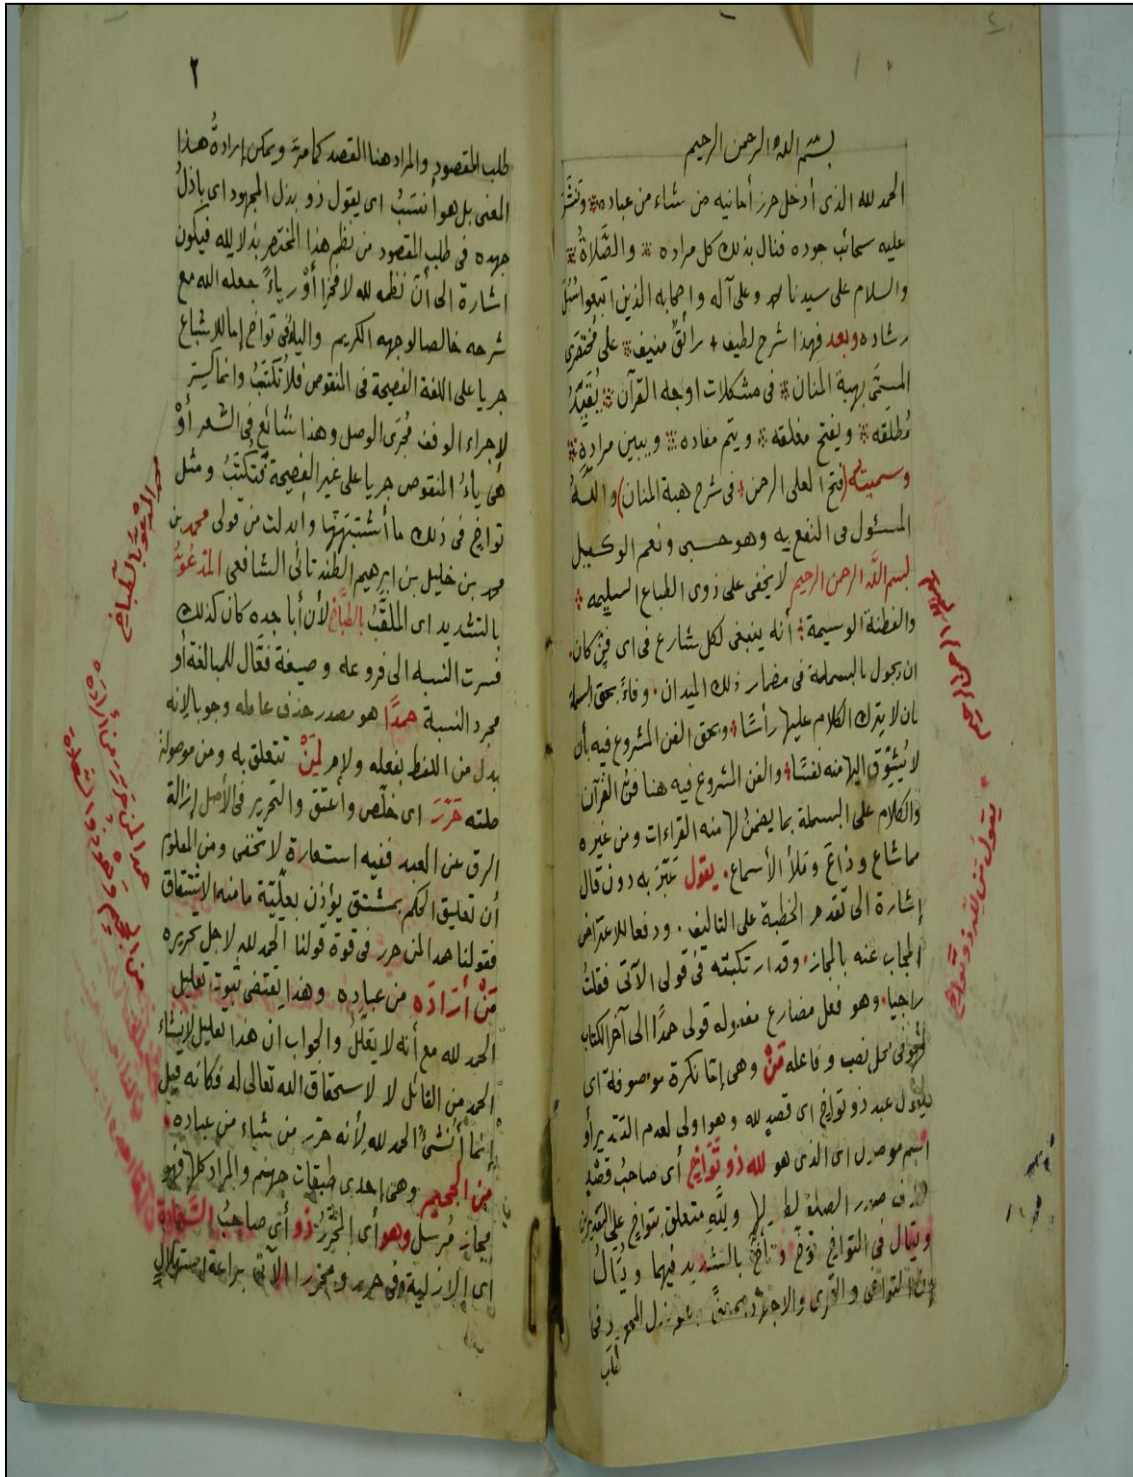 بسم الله الرحمن الرحيم
الحمد لله الذى أدخل حرز أمانيه من شاء من عباده وتنشر
عليه سحائب جوده فنال بذلك كل مراده والصلاة
والسلام على سيدنا محمد وعلى آله واصحابه الذين اتبعوا سبل
رشاده وبعد فهذا شرح لطيف رائق منيف على مختصرى
المسمى بهبة المنان فى مشكلات اوجه القرآن يقيد
مطلقه ويفتح مغلقه ويتم مفاده ويبين مراده
وسميته (فتح العلى الرحمن فى شرح هبة المنان) والله
المسئول فى النفع به وهو حسبى ونعم الوكيل
بسم الله الرحمن الرحيم لا يخفى على ذوى الطباع السليمه
والفطنة الوسيمة أنه ينبغى لكل شارع فى اى فن كان
ان يجول بالبسملة فى مضمار ذلك الميدان وفاء بحق البسملة
بان لا يترك الكلام عليها رأسا وبحق الفن المشروع فيه بأن
لا يشوق اليها منه نفسا والفن المشروع فيه هنا فن القرآن
والكلام على البسملة بما يضمن لها منه القراءات ومن غيره
مما شاع وذاع وملأ الأسماع يقول عبر به دون قال
إشارة الى تقدم الخطبة على التاليف ودفعا للاعتراض
المجاب عنه بالمجاز وقد ارتكبته فى قولى الآتى فقلت
راجيا وهو فعل مضارع مفعوله قولى حمدا الى آخر الكتاب
فى محل نصب وفاعله من وهى إما نكرة موصوفة اى
يقول عبد ذو تواخ اى قصد لله وهو اولى لعدم التقدير أو
اسم موصول اى الذى هو لله ذو تواخ أى صاحب قصد
حذف صدر الصلة لطولها ولله متعلق بتواخ على التقديرين
ويقال فى التواخ توخ وتأخ بالتشديد فيهما ويقال
التواخى والتحرى والاجتهاد بمعنى وهو بذل المجهود فى
طلب
بسم الله الرحمن الرحيم
يقول من لله ذو تواخ
٢
طلب المقصود والمراد هنا القصد كما مر ويمكن إرادة هذا
المعنى بل هو أنسب اى يقول ذو بذل المجهود اى باذل
جهده فى طلب المقصود من نظم هذا المختصر بذلا لله فيكون
اشارة الى أن نظمه لله لا فخرا أو رياء جعله الله مع
شرحه خالصا لوجهه الكريم والياء فى تواخ إما للإشباع
جريا على اللغة الفصيحة فى المنقوص فلا تكتب وانما كسر
لإجراء الوقف مجرى الوصل وهذا شائع فى الشعر أو
هى ياء المنقوص جريا على غير الفصيحة فتكتب ومثل
تواخ فى ذلك ما أشبهها وأبدلت من قولى محمد بن
محمد بن خليل بن ابرهيم الطندتائى الشافعى المدعو
بالتشديد اى الملقب بالطباخ لأن أبا جده كان كذلك
فسرت النسبه الى فروعه وصيغة فعال للمبالغة أو
مجرد النسبة حمدا هو مصدر حذف عامله وجوبا لانه
بدل من اللفظ بفعله ولام لمن تتعلق به ومن موصولة
صلته حرر اى خلص وأعتق والتحرير فى الأصل إزالة
الرق عن العبد ففيه استعارة لا تخفى ومن المعلوم
أن تعليق الحكم بمشتق يؤذن بعلية ما منه الاشتقاق
فقولنا حمدا لمن حرر فى قوة قولنا الحمد لله لاجل تحريره
من أراده من عباده وهذا يقتضى ثبوت تعليل
الحمد لله مع أنه لا يعلل والجواب ان هذا تعليل لإنشاء
الحمد من القائل لا لاستحقاق الله تعالى له فكانه قيل
إنما أنشئ الحمد لله لأنه حرر من شاء من عباده
من الجحيم وهى إحدى طبقات جهنم والمراد كلها فهو
مجاز مرسل وهو أى المحرر ذو أى صاحب السعادة
أى الازلية وفى حرر ومحررا الآتى براعة استهلال
محمد المدعو بالطباخ
حمدا لمن حرر من أراده
من الجحيم وهو ذو السعادة